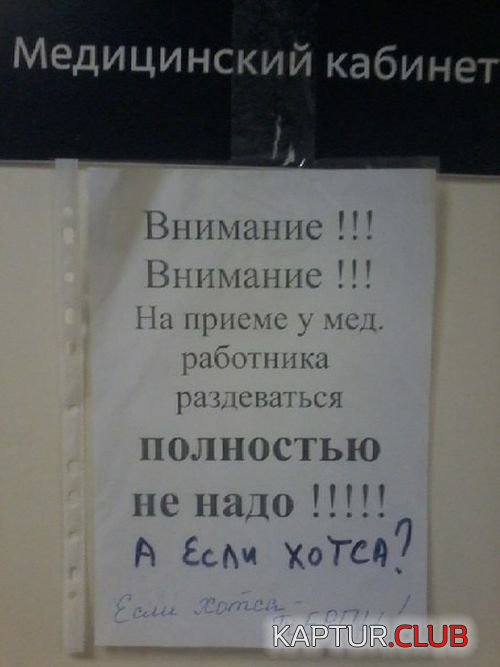 Медицинский кабинет
Внимание !!!
Внимание !!!
На приеме у мед.
работника
раздеваться
полностью
не надо !!!!!
А Если ХОТСА?
Если Хотса -
KAPTUR.CLUB